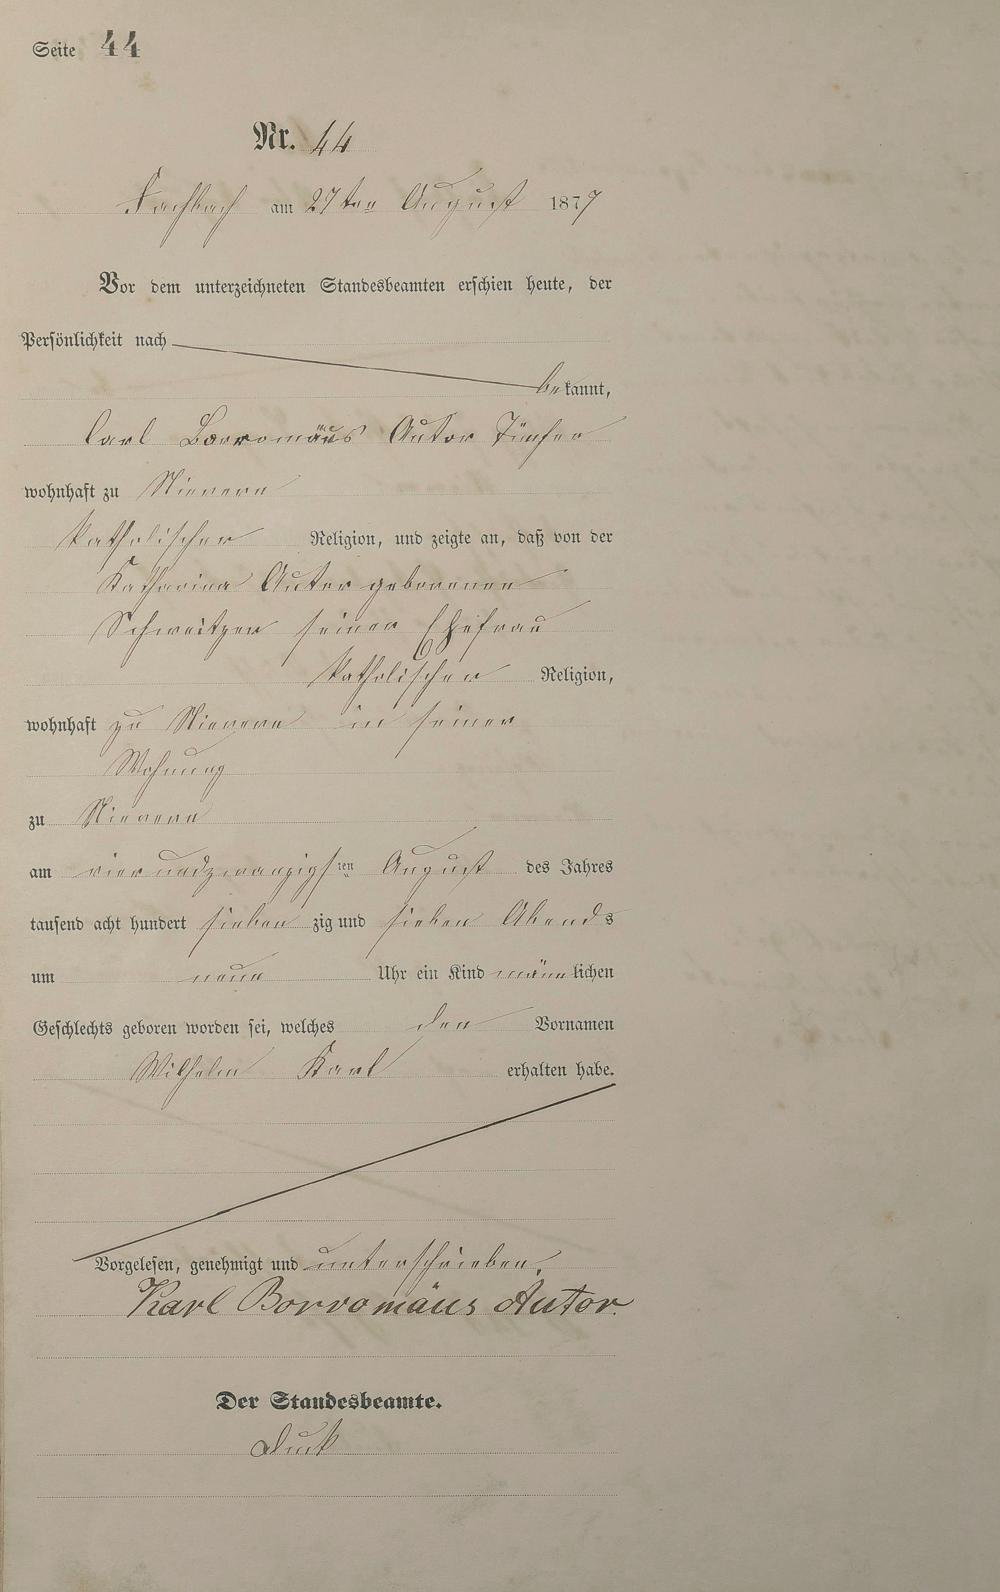 Seite 44
Nr. 44
Fachbach am 27ten August 1877
Vor dem unterzeichneten Standesbeamten erschien heute, der
Persönlichkeit nach
bekannt,
Carl Borromäus Autor
wohnhaft zu Nievern
katholischer Religion, und zeigte an, daß von der
Katharina Autor geborenen
Schweitzer seiner Ehefrau
katholischer Religion,
wohnhaft zu Nievern in seiner
Wohnung
zu Nievern
am vierundzwanzigsten August des Jahres
tausend acht hundert siebenzig und sieben Abends
um neun Uhr ein Kind männlichen
Geschlechts geboren worden sei, welches den Vornamen
Wilhelm Karl erhalten habe.
Vorgelesen, genehmigt und unterschrieben.
Karl Borromäus Autor
Der Standesbeamte.